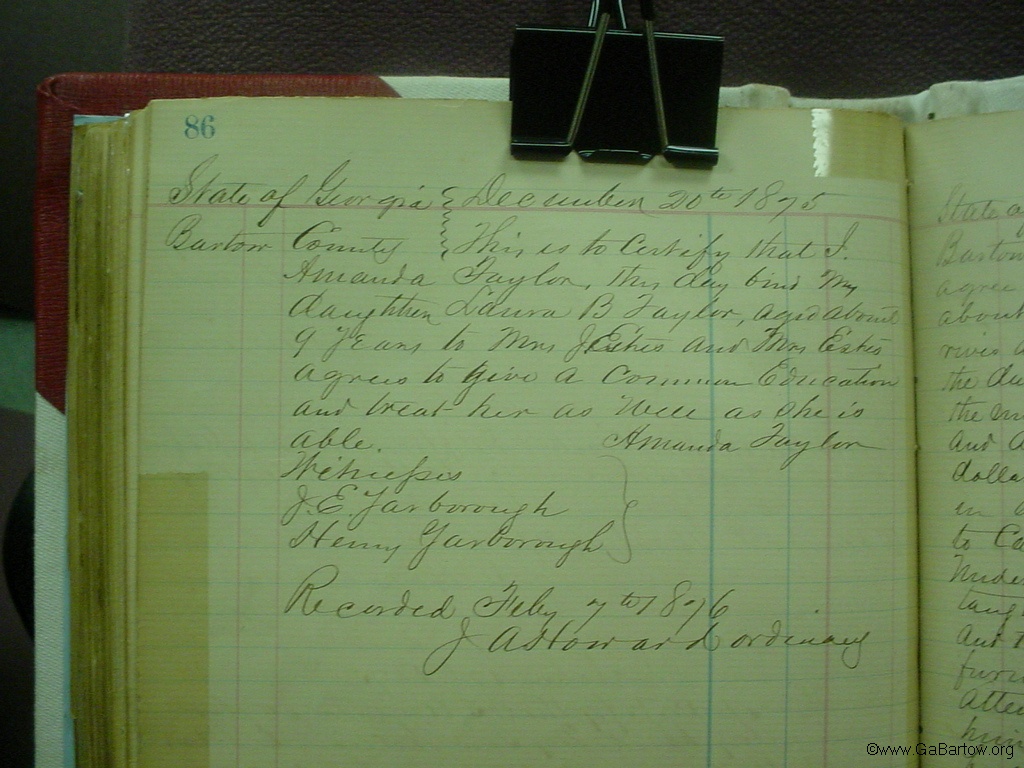 86
State of Georgia } December 20th 1875
Bartow County } This is to Certify that I.
Amanda Taylor, this day bind My
daughter Laura B Taylor, aged about
9 Years to Mrs J Estes and Mrs Estes
agrees to give a Common Education
and treat her as Well as She is
able. Amanda Taylor
Witnesses
J. E. Yarborough
Henry Yarborough
Recorded Feby 7th 1876
J A Howard ordinary
State of
Bartow
agree
about
the
the
and
dolla
in
to Ca
Unde
taug
And
furn
Atte
him
©www.GaBartow.org